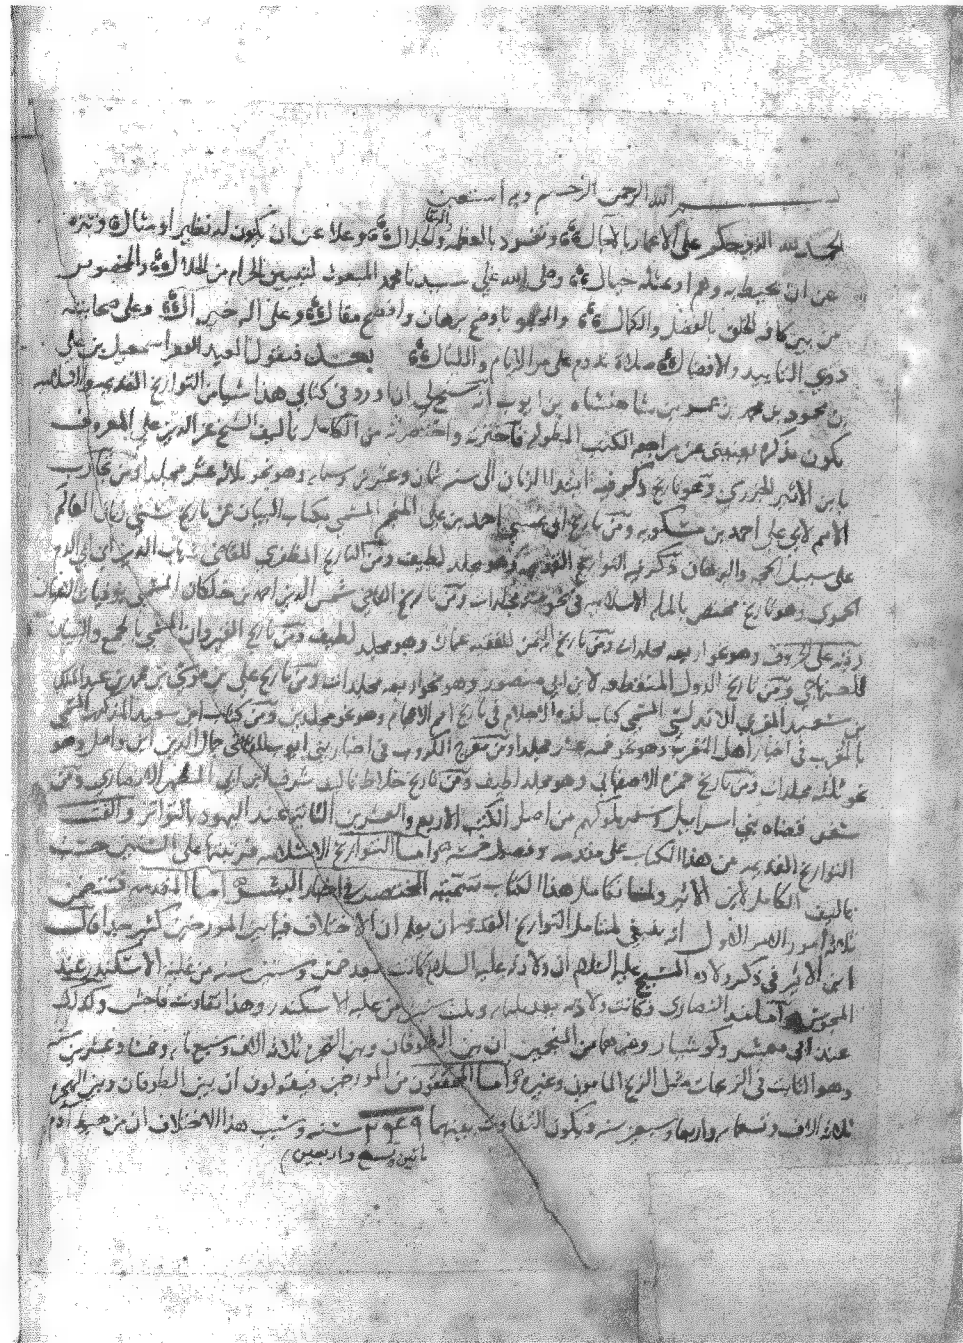 بسم الله الرحمن الرحيم وبه استعين
الحمد لله الذي حكم على الاعمار بالاجال وتفرد بالعظمة والبقا والجلال وعلا عن ان يكون له نظير او مثال وتنزه
عن ان يحيط به وهم او عثله خيال وصلى الله على سيدنا محمد المبعوث لتبيين الحرام من الحلال والمخصوص
من بين كافة الخلق بالفضل والكمال باوضح برهان وافصح مقال وعلى اله خير ال وعلى صحابته
ذوي التاييد والافضال صلاة تدوم على مر الايام والليال وبعد فيقول العبد الفقير اسمعيل بن علي
بن محمود بن محمد بن عمر بن شاهنشاه بن ايوب انه سنح لي ان اورد في كتابي هذا شيا من التواريخ القديمة والاسلامية
يكون تذكرة يغنيني عن مراجعة الكتب المطولة فاخترته واختصرته من الكامل تاليف الشيخ عز الدين علي المعروف
بابن الاثير الجزري وهو تاريخ ذكر فيه ابتدا الزمان الى سنة ثمان وعشرين وستماية وهو نحو ثلاثة عشر مجلدا ومن تجارب
الامم لابي علي احمد بن مسكويه ومن تاريخ ابي عيسى احمد بن علي المنجم المسمى بكتاب البيان عن تاريخ سني زمان العالم
على سبيل الحجة والبرهان ذكر فيه التواريخ القديمة وهو مجلد لطيف ومن التاريخ المظفري للقاضي شهاب الدين ابن ابي الدم
الحموي وهو تاريخ مختص بالملة الاسلامية في نحو ستة مجلدات ومن تاريخ القاضي شمس الدين احمد بن خلكان المسمى بوفيات الاعيان
رتبه على الحروف وهو نحو اربعة مجلدات ومن تاريخ اليمن للفقيه عمارة وهو مجلد لطيف ومن تاريخ القيروان المسمى بالجمع والبيان
للصنهاجي ومن تاريخ الدول المنقطعة لابن ابي منصور وهو نحو اربعة مجلدات ومن تاريخ علي بن موسى بن محمد بن عبد الملك
بن سعيد المغربي الاندلسي المسمى كتاب لذة الاحلام في تاريخ امم الاعجام وهو نحو مجلدين ومن كتاب ابن سعيد المذكور المسمى
بالمغرب في اخبار اهل المغرب وهو نحو خمسة عشر مجلدا ومن مفرج الكروب في اخبار بني ايوب للقاضي جمال الدين ابن واصل وهو
نحو ثلثة مجلدات ومن تاريخ حمزة الاصفهاني وهو مجلد لطيف ومن تاريخ خلاط تاليف شرف ابن ابي المطهر الانصاري ومن
سفر قضاة بني اسراييل وسفر ملوكهم من اصل الكتب الاربعة والعشرين الثابتة عند اليهود بالتواتر والفت
التواريخ القديمة من هذا الكتاب على مقدمة وفصول خمسة واما التواريخ الاسلامية فرتبتها على السنين حسب
تاليف الكامل لابن الاثير ولما تكامل هذا الكتاب سميته المختصر في اخبار البشر اما المقدمة فتتضمن
ثلاثة امور الامر الاول انه ينبغي لمتامل التواريخ القديمة ان يعلم ان الاختلاف فيها بين المورخين كثير جدا قال
ابن الاثير في ذكر ولادة المسيح عليه السلام ان ولادته عليه السلام كانت بعد خمس وستين سنة من غلبة الاسكندر عند
المجوس واما عند النصارى فكانت ولادته بعد ثلثماية وثلث سنين من غلبة الاسكندر وهذا تفاوت فاحش وكذلك
عند ابي معشر وكوشيار وغيرهما من المنجمين ان بين الطوفان وبين الهجرة ثلاثة الاف وسبع ماية وخمسا وعشرين سنة
وهو الثابت في الزيجات مثل الزيج الماموني وغيره واما المحققون من المورخين فيقولون ان بين الطوفان وبين الهجرة
ثلاثة الاف وتسعماية واربعا وسبعين سنة ويكون التفاوت بينهما ٢٤٩ سنة وسبب هذا الاختلاف ان من هبوط ادم
مايتين وتسع واربعين